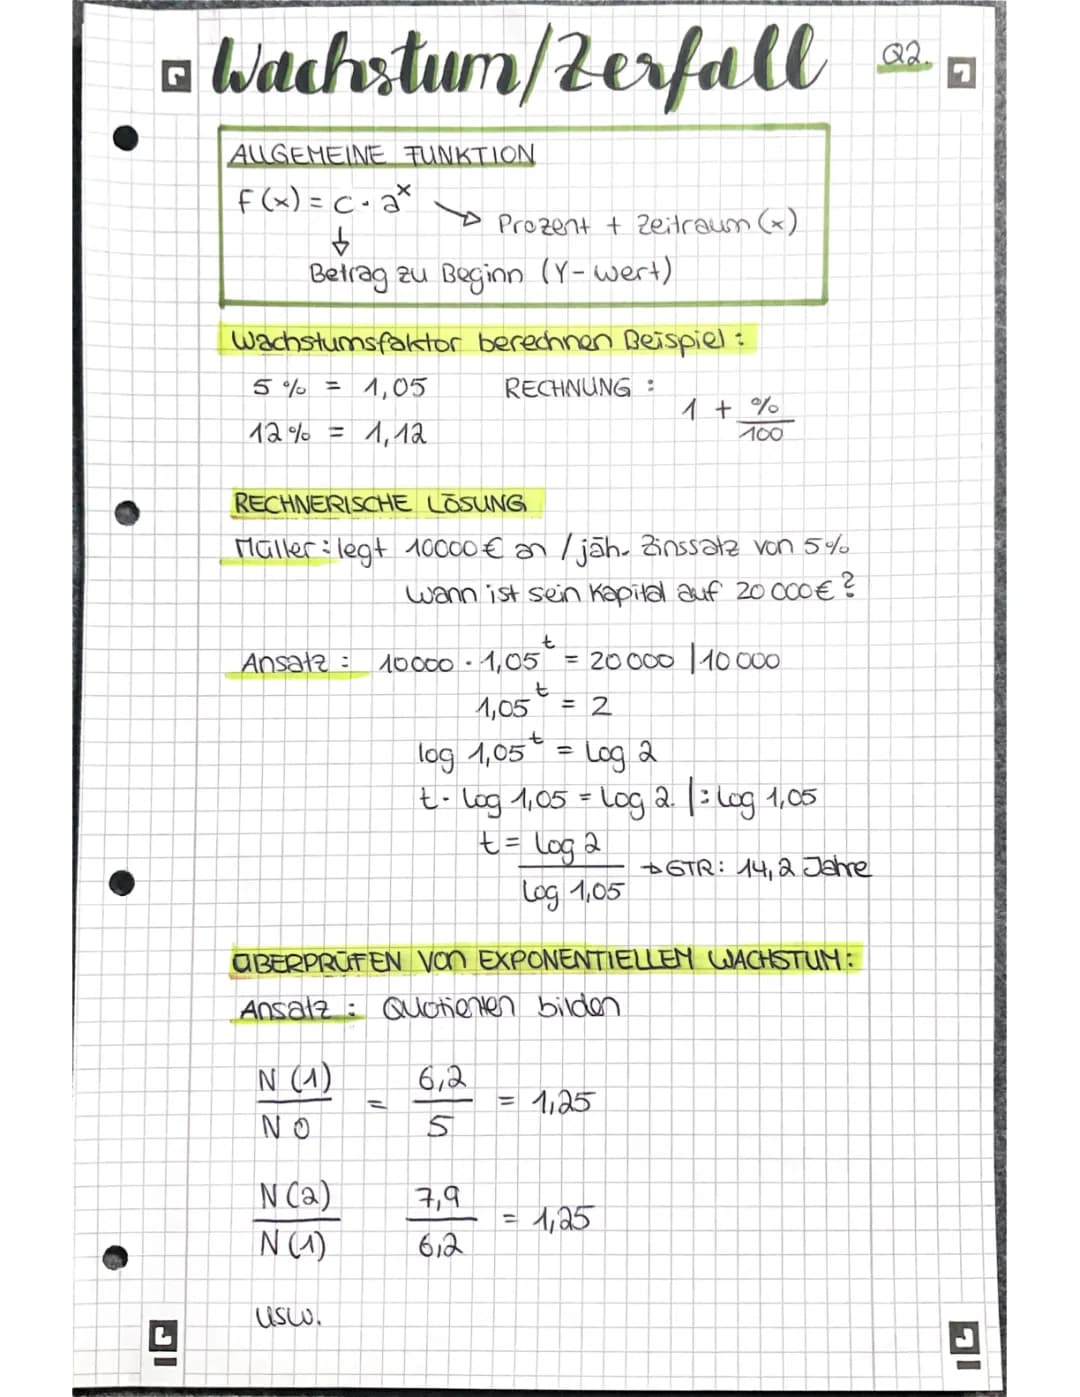 Wachstum/Zerfall Q2.
ALLGEMEINE FUNKTION
f(x) = c · a^x → Prozent + Zeitraum (x)
↓
Betrag zu Beginn (Y-Wert)
Wachstumsfaktor berechnen Beispiel:
5% = 1,05 RECHNUNG: 1 + %/100
12% = 1,12
RECHNERISCHE LÖSUNG
Müller: legt 10000€ an / jäh. Zinssatz von 5%
Wann ist sein Kapital auf 20 000€?
Ansatz: 10000 · 1,05^t = 20000 | 10 000
1,05^t = 2
log 1,05^t = log 2
t · log 1,05 = log 2. |: log 1,05
t = log 2 / log 1,05 → GTR: 14,2 Jahre
ÜBERPRÜFEN VON EXPONENTIELLEM WACHSTUM:
Ansatz: Quotienen bilden
N(1)/N0 = 6,2/5 = 1,25
N(2)/N(1) 7,9/6,2 = 1,25
usw.